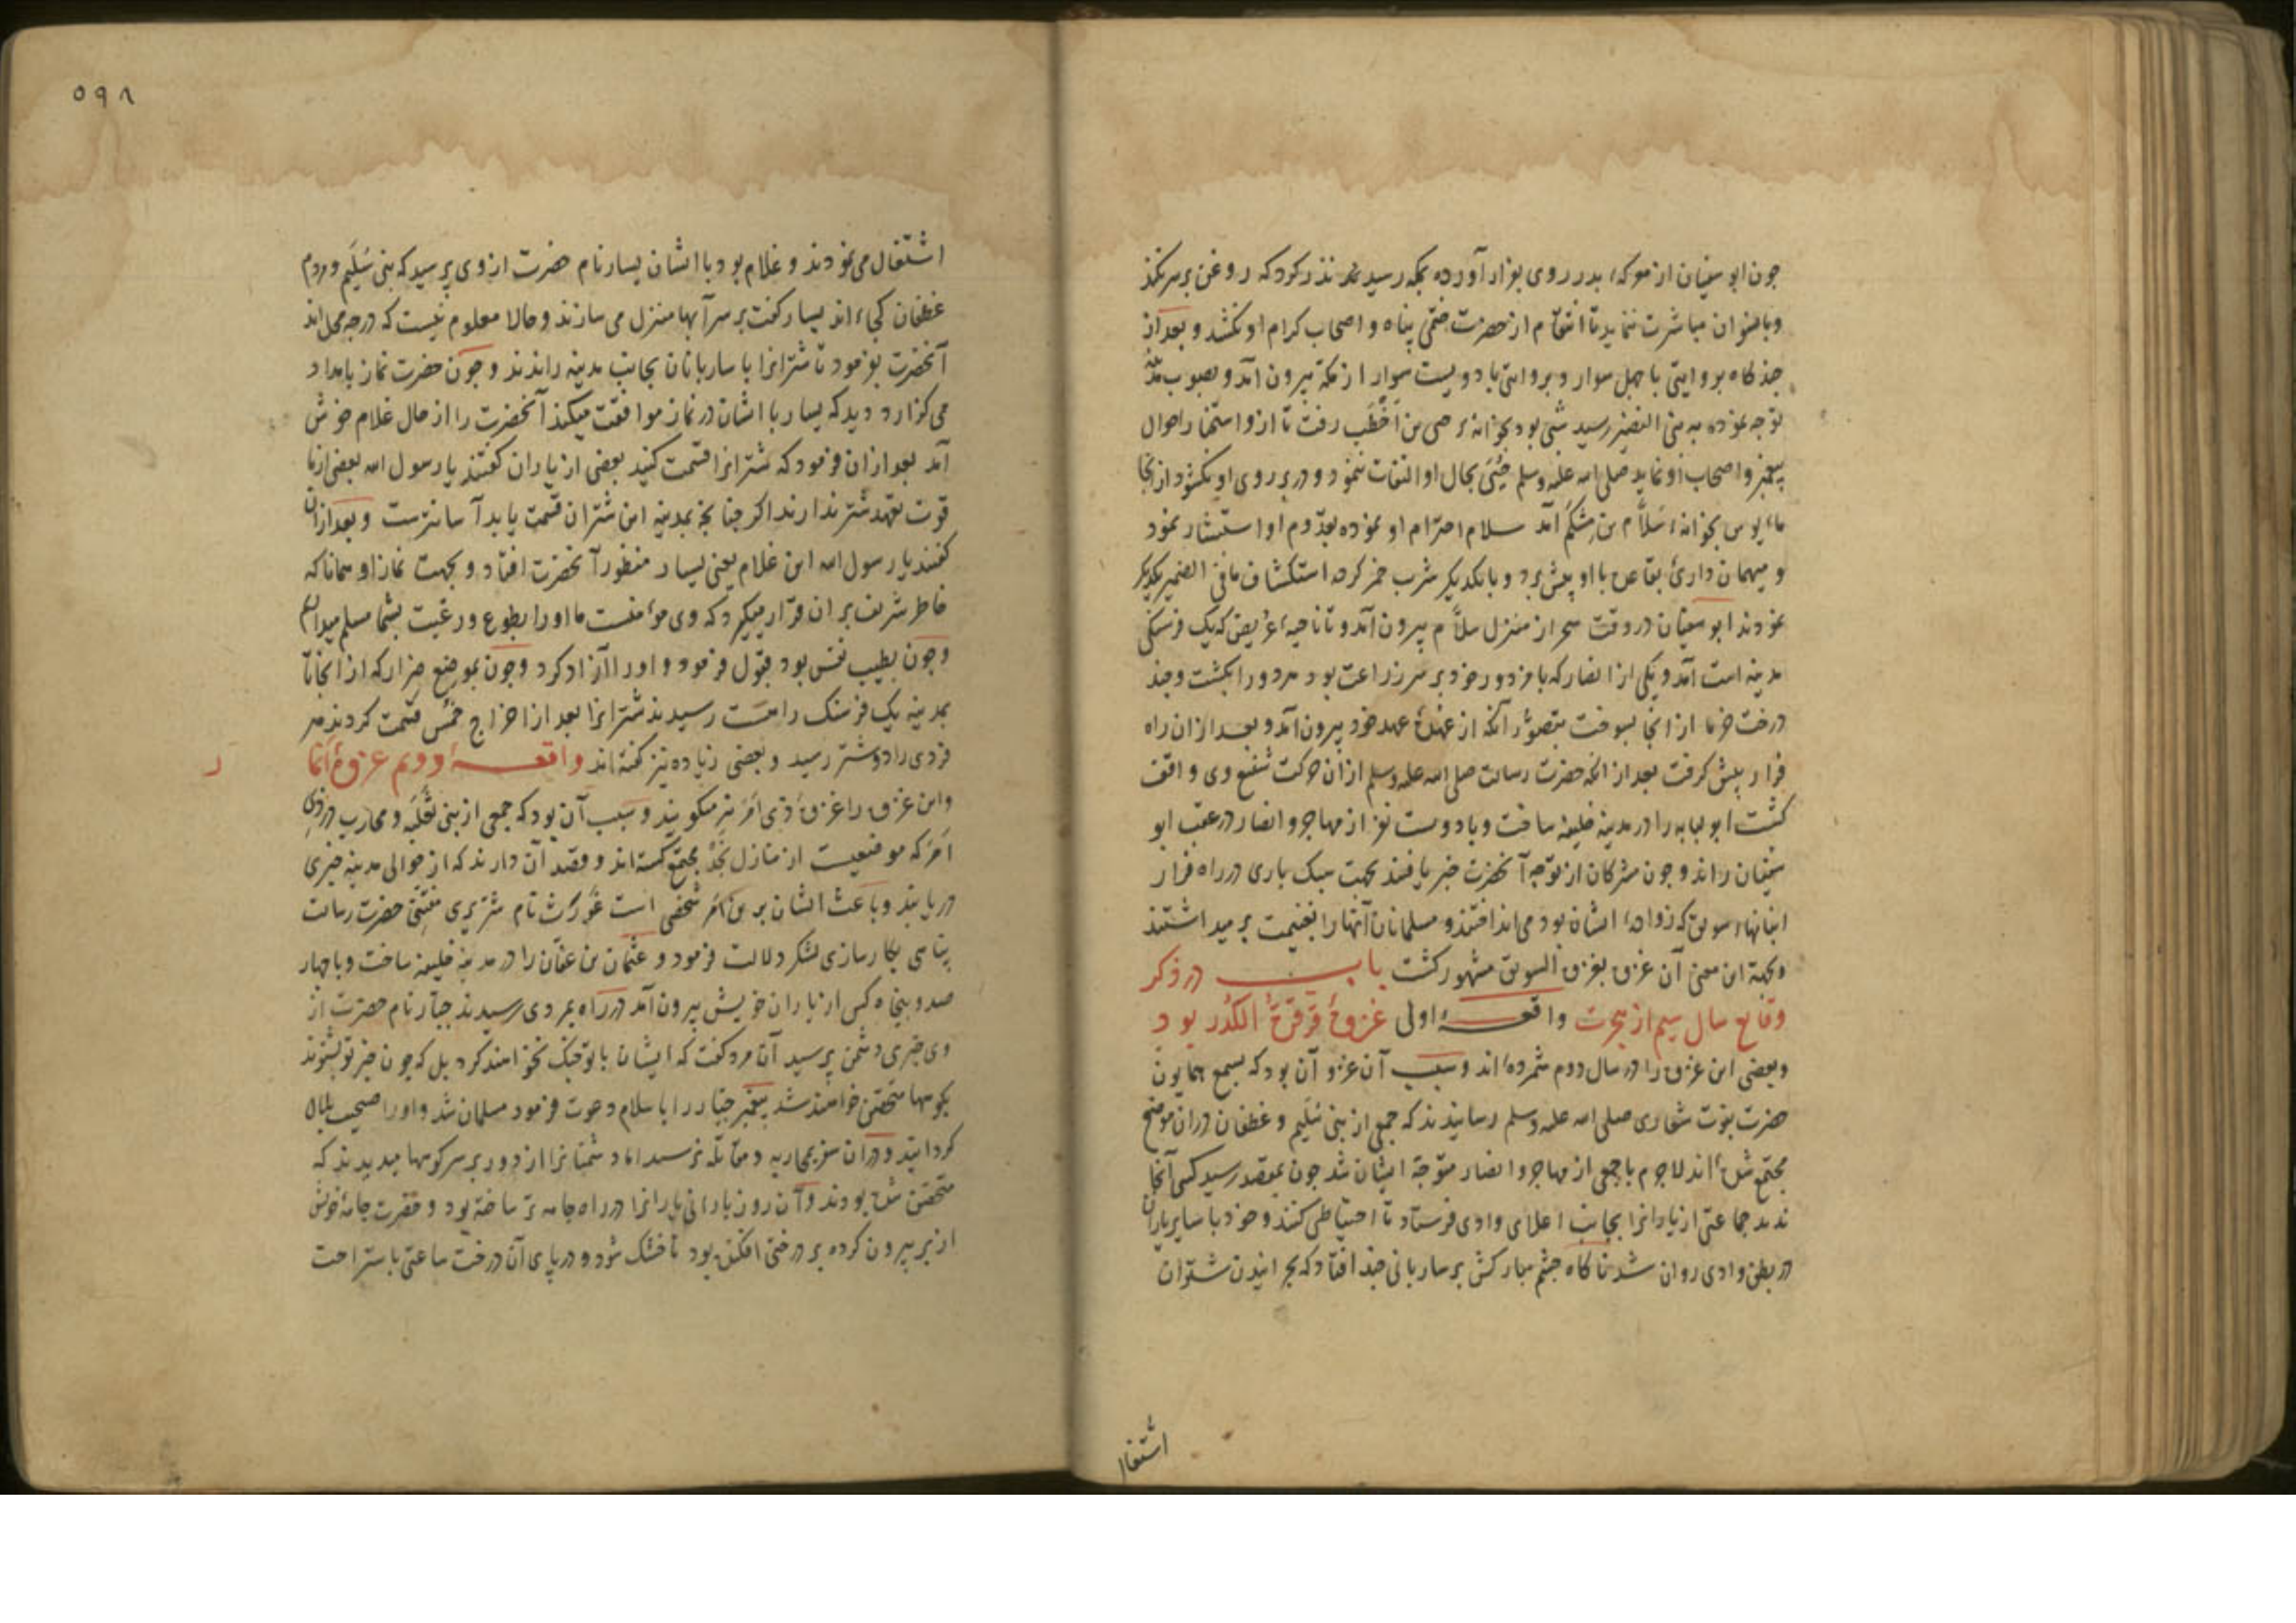 چون ابو سفیان از معرکهٔ بدر روی بفرار آورده بمکه رسید نذر کرد که روغن بر سر نکند
وبا نسوان مباشرت ننماید تا انتقام از حضرت ختمی پناه و اصحاب کرام او نکشد و بعد از
چند کاه بروایتی با چهل سوار و بروایتی با دویست سوار از مکه بیرون آمد و بصوب مدینه
توجه نموده به بنی النضیر رسید شبی بود بخانهٔ حیی بن اَخطَب رفت تا ازو استخبار احوال
پیغمبر واصحاب او نماید صلی الله علیه وسلم حُیَیّ بحال او التفات ننمود و در بر روی او نکشود از انجا
مایوس بخانهٔ سَلاّم بن مِشکَم آمد سلام احترام او نموده بقدوم او استبشار نمود
و میهمان داری بتقاعی با او پیش برد و با یکدیکر شرب خمر کرده استکشاف مافی الضمیر یکدیکر
نمودند ابو سفیان در وقت سحر از منزل سلاّم بیرون آمد و تا ناحیهٔ عُریض که یک فرسنکی
مدینه است آمد و یکی از انصار که با مزدور خود بر سر زراعت بود مرد و را بکشت و چند
درخت خرما از انجا بسوخت بتصوّر آنکه از عهدهٔ عهد خود بیرون آمد و بعد از ان راه
فرار پیش کرفت بعد از انکه حضرت رسالت صلی الله علیه وسلم از ان حرکت شنیع وی واقف
کشت ابو لبابه را در مدینه خلیفه ساخت و با دویست نفر از مهاجر و انصار در عقب ابو
سفیان راند و چون مشرکان از توجه آنحضرت خبر یافتند بجهت سبک باری در راه فرار
انبانهاء سویق که زوادهٔ ایشان بود می انداختند و مسلمانان آنها را بغنیمت بر میداشتند
وبجهة این معنی آن غزوه بغزوه السویق مشهور کشت باب در ذکر
وقایع سال سیم از هجرت واقعهٔ اولی غزوهٔ قرقرة الکُدر بود
وبعضی این غزوه را در سال دوم شمرده‌اند و سبب آن غزو آن بود که بسمع همایون
حضرت نبوت شعاری صلی الله علیه وسلم رسانیدند که جمعی از بنی سُلَیم و غطفان در ان موضع
مجتمع شده‌اند لاجرم با جمعی از مهاجر و انصار متوجهٔ ایشان شد چون بمقصد رسید کسی آنجا
ندید جماعتی از یارانرا بجانب اعلای وادی فرستاد تا احتیاطی کنند و خود با سایر یاران
در بطن وادی روان شد ناکاه چشم مبارکش بر ساربانی چند افتاد که بچرانیدن شتران
اشتغال
۵۹۸
اشتغال می نمودند و غلام بود با ایشان یسار نام حضرت از وی پرسید که بنی سُلَیم و مردم
غطفان کجااند یسار کفت بر سر آبها منزل می سازند و حالا معلوم نیست که در چه محل اند
آنحضرت بفرمود تا شترانرا با ساربانان بجانب مدینه راندند و چون حضرت نماز بامداد
می کزارد دید که یسار با ایشان در نماز موافقت میکند آنحضرت را از حال غلام خوش
آمد بعد از ان فرمود که شترانرا قسمت کنید بعضی از یاران کفتند یا رسول الله بعضی از ما
قوت تعهد شتر ندارند اکر چنانچه بمدینه این شتران قسمت یابد آسانترست وبعد ازان
کفتند یا رسول الله این غلام یعنی یسار منظور آنحضرت افتاد و بجهت نماز او همانا که
خاطر شریف بر ان قرار میکیرد که وی مؤمنست ما او را بطوع و رغبت بشما مسلم میداریم
وچون بطیب نفس بود قبول فرمود و او را آزاد کرد وچون بموضع صِرار که از انجا تا
بمدینه یک فرسنک راهست رسیدند شترانرا بعد از اخراج خُمُس قسمت کردند هر
فردی را دو شتر رسید و بعضی زیاده نیز کفته‌اند واقعهٔ دویم غزوهٔ انمار
واین غزوه را غزوهٔ ذی اَمَر نیز میکویند و سبب آن بود که جمعی از بنی ثعلبه و محارب در ذی
اَمَر که موضعیست از منازل نجد مجتمع کشته‌اند و قصد آن دارند که از حوالی مدینه چیزی
دریابند و باعث ایشان بر من امر شخصی است غَورَث نام حضرت رسالت
پناهی بکار سازی لشکر دلالت فرمود و عثمان بن عفان را در مدینه خلیفه ساخت وبا چهار
صد و پنجاه کس از یاران خویش بیرون آمد در راه بمردی رسیدند جبّار نام حضرت از
وی خبری دشمن پرسید آن مرد کفت که ایشان با تو جنک نخواهند کرد بل که چون خبر تو بشنوند
بکوهها متحصّن خواهند شد پیغمبر جبّار را باسلام دعوت فرمود مسلمان شد و او را صحیب بلال
کردانید و در ان سفر بمحاربه و مقاتله نرسید اما دشمنانرا از دور بر سر کوهها میدیدند که
متحصّن شده بودند و آن روز بارانی یارانرا در راه جامه تر ساخته بود و حضرت جامهٔ خویش
از بر بیرون کرده بر درختی افکنده بود تا خشک شود و در پای آن درخت ساعتی باستراحت